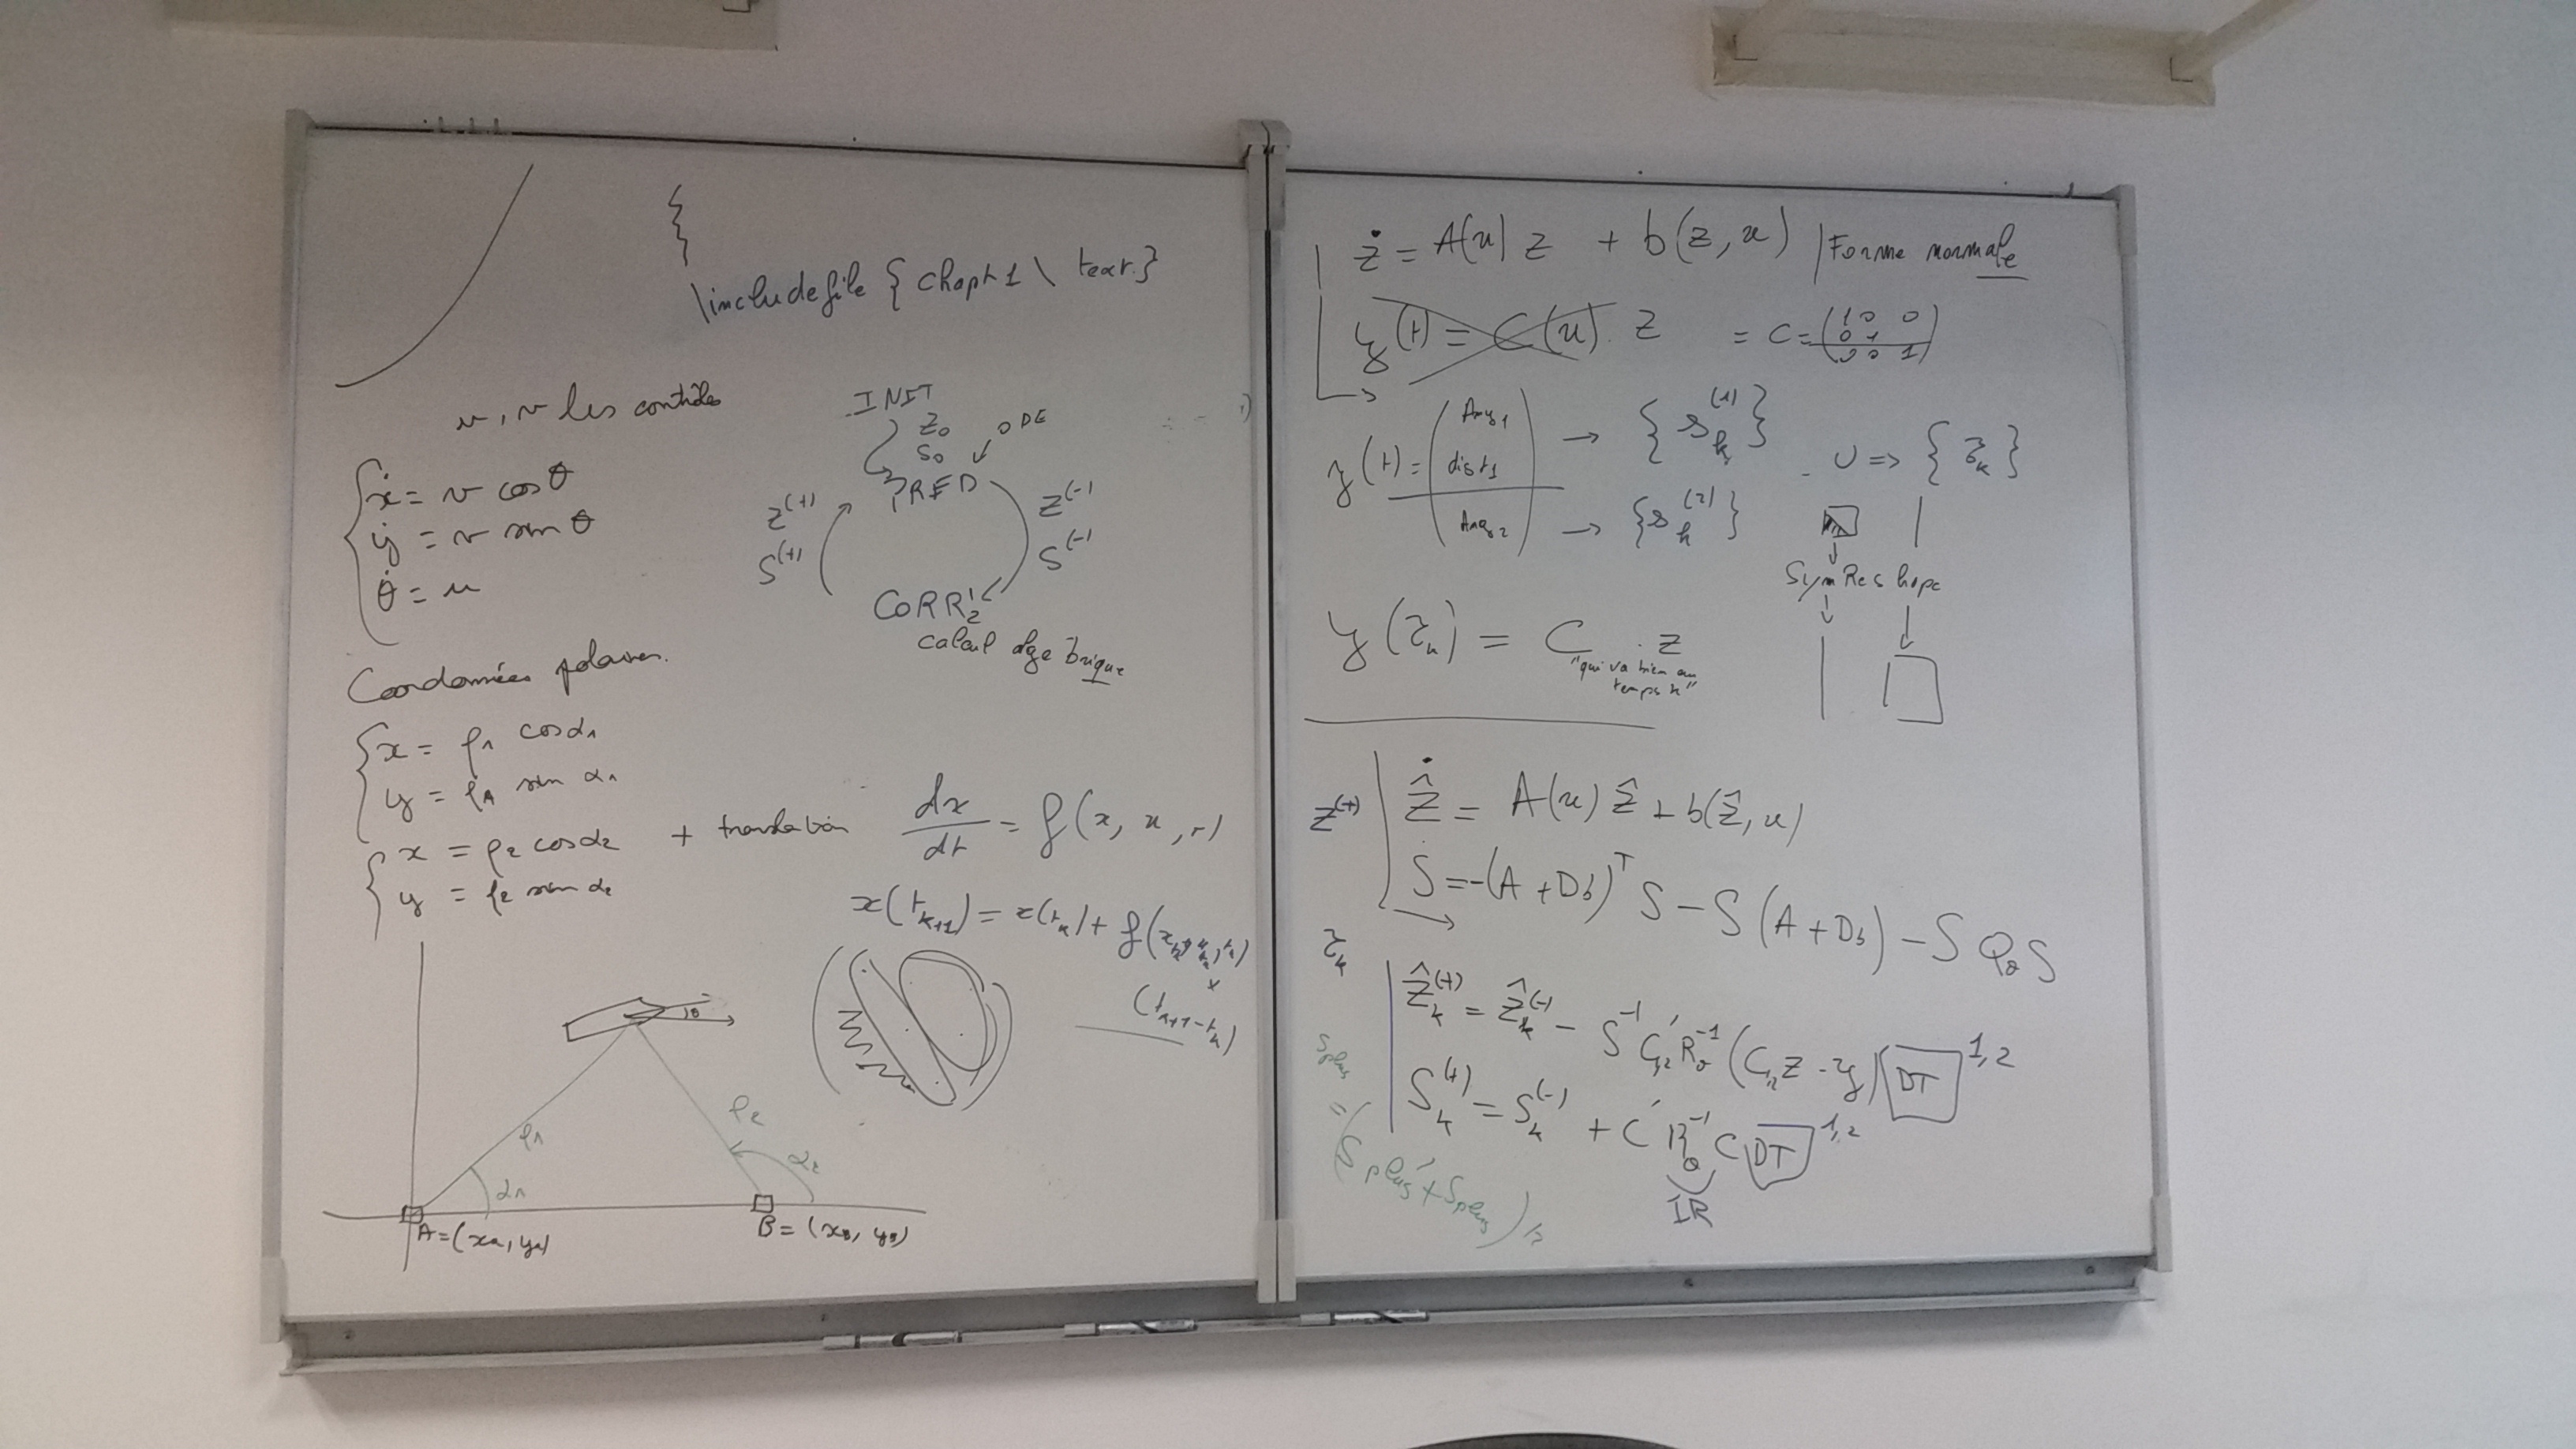 \includefile {chapt1 \ text.}
u, v les contrôles
ẋ = v cos θ
ẏ = v sin θ
θ̇ = u
INIT
Z₀
S₀
ODE
PRED
Z⁽⁺⁾
S⁽⁺⁾
Z⁽⁻⁾
S⁽⁻⁾
CORR 1 2
calcul algébrique
Coordonnées polaires.
x = ρ₁ cos α₁
y = ρ₁ sin α₁
x = ρ₂ cos α₂
y = ρ₂ sin α₂
+ translation
dx/dt = f(x, u, t)
x(t_{k+1}) = x(t_k) + f(x_k, u_k, t_k)
×
(t_{k+1} - t_k)
θ
ρ₁
α₁
ρ₂
α₂
A = (x_A, y_A)
B = (x_B, y_B)
ż = A(u) z + b(z, u) | Forme normale
y(t) = C(u) . z = C = (1 0 0 0 1 0 0 1)
y(t) = ( Ang₁ dist₁ Ang₂ )
→ {s_k⁽¹⁾}
→ {s_k⁽²⁾}
U => {τ_k}
SymRes hope
y(τ_k) = C . z
"qui va bien au
temps k"
Z⁽⁺⁾
ẑ̇ = A(u) ẑ + b(ẑ, u)
Ṡ = -(A + Db)ᵀ S - S (A + Db) - S Q_θ S
τ_k
ẑ_k⁽⁺⁾ = ẑ_k⁽⁻⁾ - S⁻¹ C'₁,₂ R_θ⁻¹ (C₁,₂ z - y) DT 1,2
S_k⁽⁺⁾ = S_k⁽⁻⁾ + C' R_θ⁻¹ C DT 1,2
IR
Splus
= (Splus' + Splus)/2